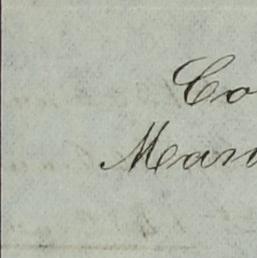 Co
Man